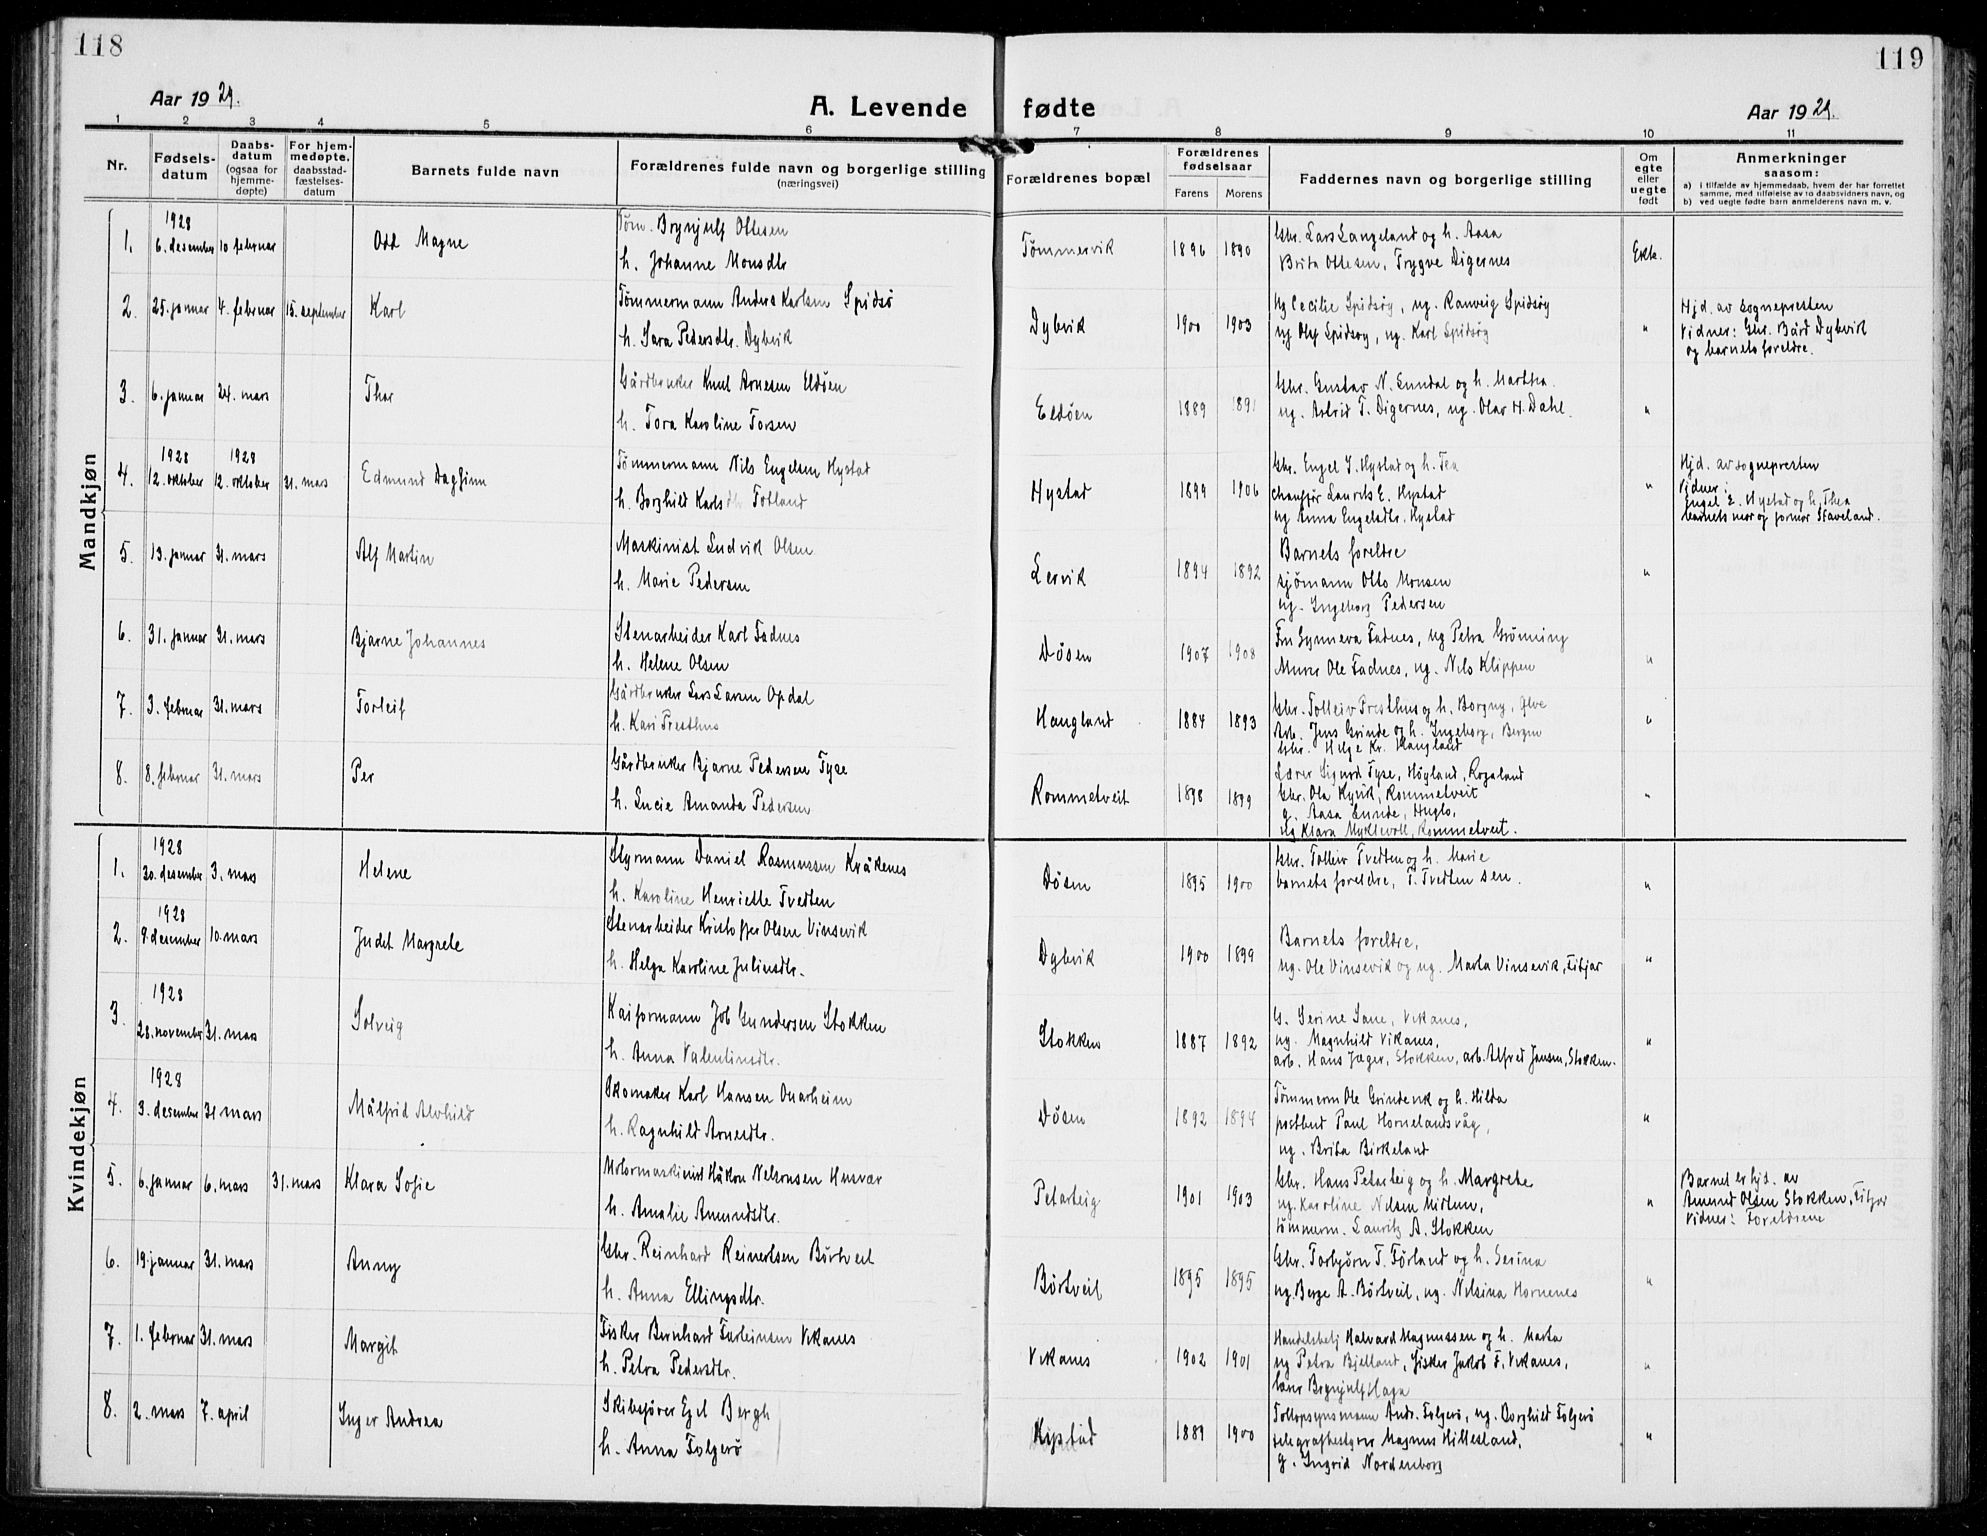 118
119
Aar 1929.
A. Levende fødte
Aar 1929.
1 2 3 4 5 6 7 8 9 10 11
Nr.
Fødsels-
datum
Daabs-
datum
(ogsaa for
hjemme-
døpte)
For hjem-
medøpte,
daabsstad-
fæstelses-
datum
Barnets fulde navn
Forældrenes fulde navn og borgerlige stilling
(næringsvei)
Forældrenes bopæl
Forældrenes
fødselsaar
Farens Morens
Faddernes navn og borgerlige stilling
Om
egte
eller
uegte
født
Anmerkninger
saasom:
a) i tilfælde av hjemmedaab, hvem der har forrettet
samme, med tilføielse av to daabsvidners navn, og
b) ved uegte fødte barn anmelderens navn m. v.
Mandkjøn
1.
1928
6. desember 10 februar
Odd Magne
Tøm. Brynjulf Ottesen
h. Johanne Monsdtr
Tømmervik
1896 1890
Gbr. Lars Langeland og h. Aasa
Brita Ottesen, Trygve Digernes
Ekte.
2.
25. januar 4. februar 15. september
Karl
Tømmermann Anders Karlsen Spidsö
h. Sara Pedersdtr. Dybvik
Dybvik
1900 1903
ug Cecilie Spidsøy, ug. Ranveig Spidsøy
ug Olaf Spidsøy, ug. Karl Spidsøy
"
Hjd. av sognepresten
Vidner: Gbr. Bård Dybvik
og barnets foreldre.
3.
6. januar 24. mars
Thor
Gårdbruker Knut Arnesen Eldöen
h. Tora Karoline Torsen
Eldöen
1889 1891
Gbr. Gustav N. Lundal og h. Martha.
ug. Astrid T. Digernes, ug. Olav H. Dahl.
"
4.
1928 1928
12. oktober 12. oktober 31. mars
Edmund Dagfinn
Tømmermann Nils Engelsen Hystad
h. Borghild Karlsdtr Totland
Hystad
1899 1906
Gbr. Engel J. Hystad og h. Tea
chauffør Laurits E. Hystad
ug Anna Engelsdtr. Hystad
"
Hjd. av sognepresten
Vidner:
Engel E. Hystad og h. Thea
barnets mor og jormor Staveland.
5.
13. januar 31. mars
Alf Martin
Maskinist Ludvik Olsen
h. Marie Pedersen
Lervik
1894 1892
Barnets foreldre
sjømann Otto Monsen
ug. Ingeborg Pedersen
"
6.
31. januar 31. mars
Bjarne Johannes
Stenarbeider Karl Fadnes
h. Helene Olsen
Døsen
1907 1908
Fru Synneva Fadnes, ug Petra Grønning
Murer Ole Fadnes, ug. Nils Klippen
"
7.
3. februar 31. mars
Torleif
Gårdbruker Lars Larsen Opdal
h. Kari Presthus
Haugland
1884 1893
Gbr. Tolleiv Presthus og h. Borgny, Ølve
Arb. Jens Grinde og h. Ingeborg, Bergen
Gbr. Helge Kr. Haugland
"
8.
8. februar 31. mars
Per
Gårdbruker Bjarne Pedersen Tyse
h. Lucie Amanda Pedersen
Rommetveit
1898 1899
Lærer Sigurd Tyse, Höyland, Rogaland
Gbr. Ola Kyvik, Rommetveit
g. Aasa Lunde, Huglo,
ug Klara Myklevoll, Rommetveit.
"
Kvindekjøn
1.
1928
30. desember 3. mars
Helene
Styrmann Daniel Rasmussen Kråkenes
h. Karoline Henriette Tvedten
Døsen
1895 1900
Gbr. Tolleiv Tvedten og h. Marie
barnets foreldre, T. Tvedten sen.
"
2.
1928
9. desember 10. mars
Judit Margrete
Stenarbeider Kristoffer Olsen Vinsevik
h. Helga Karoline Juliusdtr.
Dybvik
1900 1899
Barnets foreldre,
ug. Ole Vinsevik og ug. Marta Vinsevik, Fitjar
"
3.
1928
28. november 31. mars
Solveig
Kaiformann Job Gundersen Stokken
h. Anna Valentinsdtr.
Stokken
1887 1892
G. Serine Sane, Vikanes,
ug. Magnhild Vikanes,
arb. Hans Jæger, Stokken, arb. Alfred Jansen, Stokken.
"
4.
1928
3. desember 31 mars
Målfrid Alvhild
Skomaker Karl Hansen Onarheim
h. Ragnhild Arnesdtr.
Døsen
1892 1894
Tømmerm Ole Grindevik og h. Hilda
postbud Paul Hornelandsvåg,
ug. Brita Birkeland
"
5.
6. januar 6. mars 31. mars
Klara Sofie
Motormaskinist Håkon Nelsonsen Husvær
h. Amalie Amundsdtr.
Petarteig
1901 1903
Gbr. Hans Petarteig og h. Margrete
ug. Karoline Nilsen Midtun,
tømmerm. Lauritz A. Stokken
"
Barnet er hjd. av
Amund Olsen Stokken, Fitjar
Vidner: Foreldrene
6.
19. januar 31. mars
Anny
Gbr. Reinhard Reinertsen Börtveit
h. Anna Ellingsdtr.
Börtveit
1895 1895
Gbr. Torbjörn T. Förland og h. Serina
ug. Berge A. Börtveit, ug. Nilsina Hornenes
"
7.
1. februar 31. mars
Margit
Fisker Bernhard Torleinsen Vikanes
h. Petra Pedersdtr.
Vikanes
1902 1901
Handelsbetj Halvard Magnussen og h. Marta
ug Petra Bjelland, fisker Jakob F. Vikanes,
lærer Brynjulf Haga
"
8.
2. mars 7. april
Inger Andrea
Skibsfører Egil Bergh
h. Anna Folgerö
Hystad
1889 1900
Tollopsynsmann Andr. Folgerö, ug. Borghild Folgerö
telegrafbestyrer Magnus Hillestand,
g. Ingrid Nordenborg
"